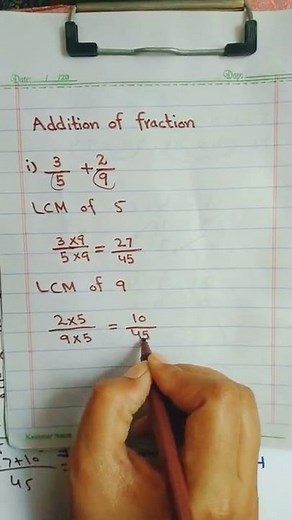 Date: / /20
Day:
Addition of fraction
i) 3/5 + 2/9
LCM of 5
3×9/5×9 = 27/45
LCM of 9
2×5/9×5 = 10/45
7+10/45 =